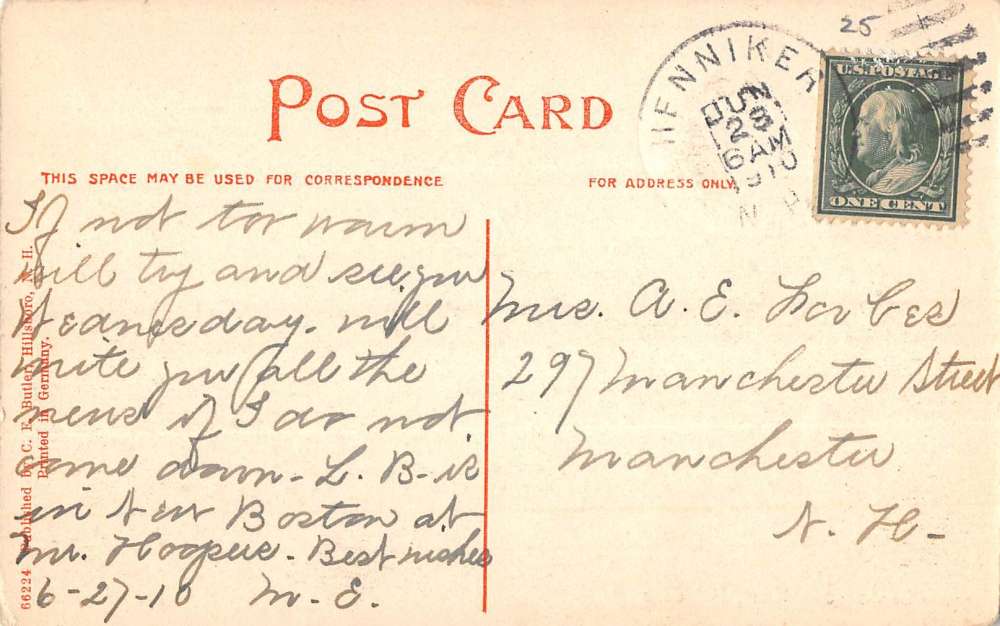 25
HENNIKER
JUN 28
6 AM
1910
N.H.
U.S. POSTAGE
ONE CENT
POST CARD
THIS SPACE MAY BE USED FOR CORRESPONDENCE
FOR ADDRESS ONLY.
If not too warm
will try and see you
Wednesday. will
write you all the
news if I do not
come down - L. B. is
in New Boston at
Mr. Hoopers - Best wishes
6-27-10 M. E.
Mrs. A. E. Forbes
297 Manchester Street
Manchester
N. H-
66224 Published by C. F. Butler, Hillsboro, N. H.
Printed in Germany.